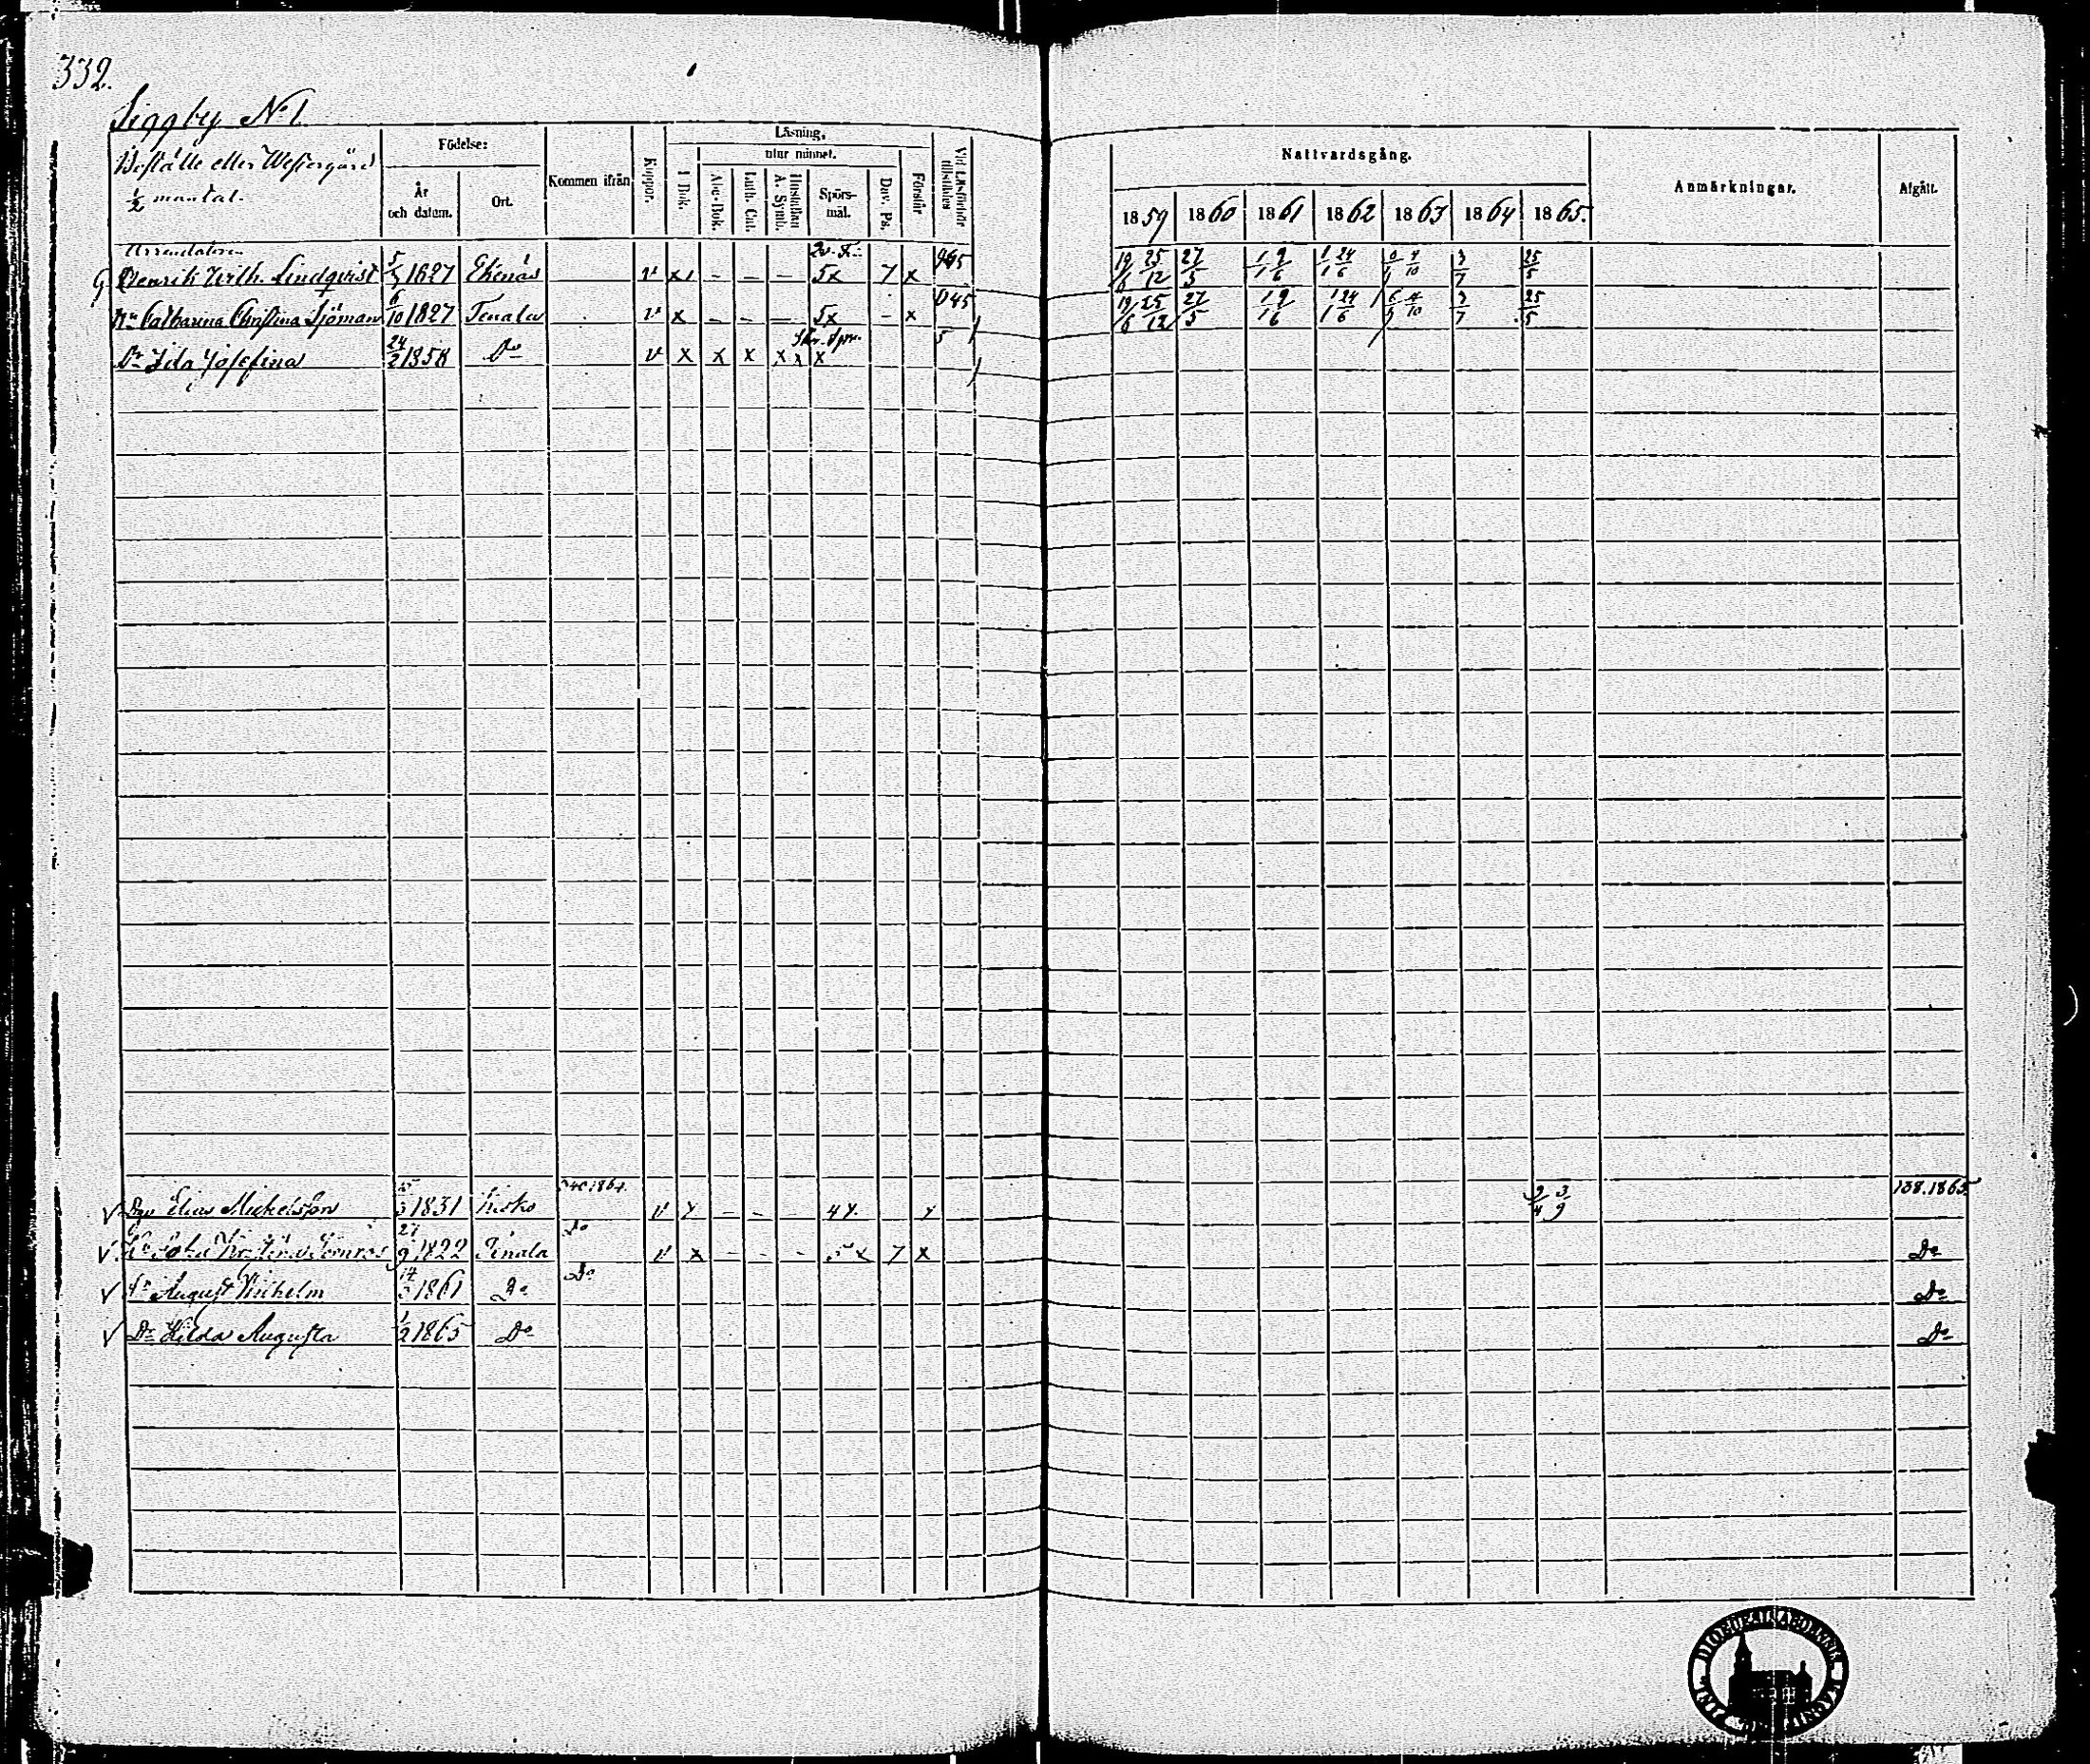 332.
Siggby No 1
Boställe eller Westergård
1/2 mantal.
Födelse:
År och datum.
Ort.
Kommen ifrån
Koppor.
Läsning,
I Bok.
utur minnet.
Abc-Bok.
Luth. Cat.
Hustaflan A. Symb.
Spörs-mål.
Dav. Ps.
Förstår
Vid Läsförhör tillstädes
Nattvardsgång.
1859 1860 1861 1862 1863 1864 1865.
Anmärkningar.
Afgått.
Arrendatorn
Henrik Wilh. Lindqvist 5 1827 Ekenäs v x - - - 5x 7 x 19/6 25/12 27/5 1/1 9/6 1/1 24/6 4/10 3/7 25/5
Hu Catharina Christina Sjöman 6/10 1827 Tenala v x - - - 5x - x 19/6 25/12 27/5 1/1 9/6 1/1 24/6 4/10 3/7 25/5
Dr Ida Josefina 24/2 1858 Do v x x x x x x 5
Elias Mickelsson 1831 Kisko v - - - 4 3/9 138.1865.
Kristina 27/9 1822 Tenala Do v x - - - 5 x 7 x Do
Sn August Wilhelm 1861 Do Do Do
Dr Hilda Augusta 1/2 1865 Do Do